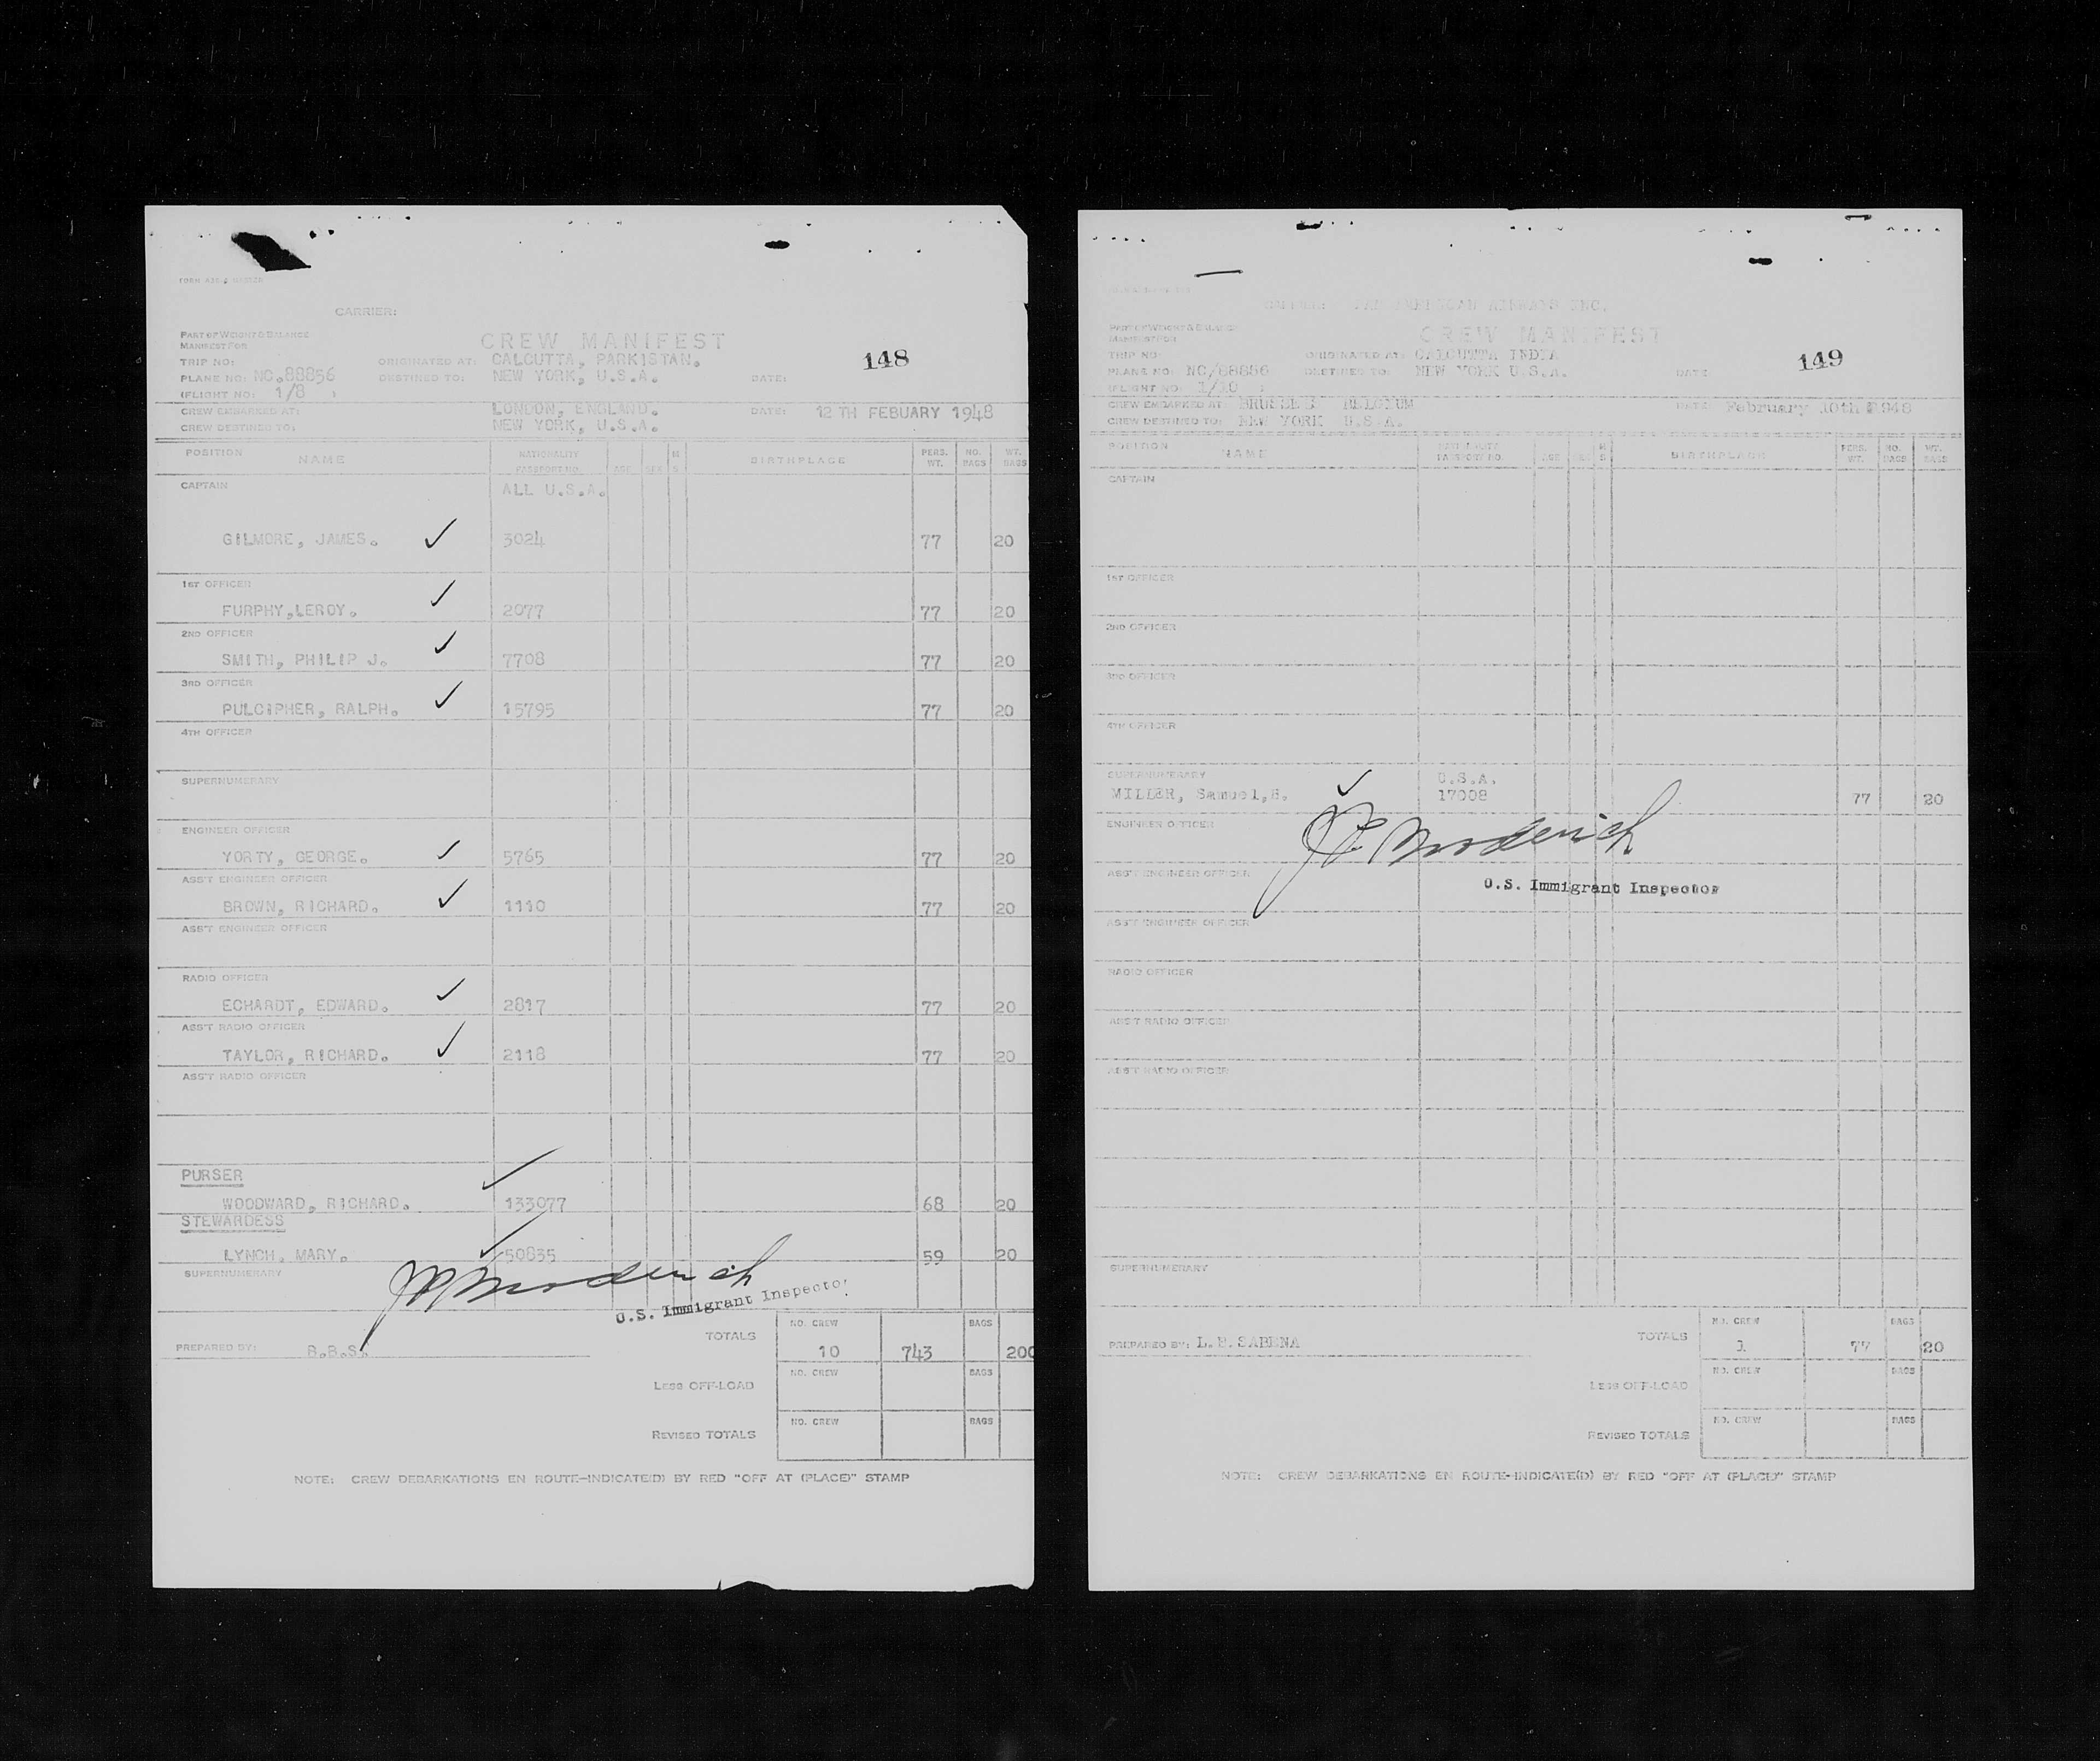 CARRIER:
PART OF WEIGHT & BALANCE
MANIFEST FOR
CREW MANIFEST
148
TRIP NO: ORIGINATED AT: CALCUTTA, PARKISTAN.
PLANE NO: NC.88856 DESTINED TO: NEW YORK, U.S.A. DATE:
(FLIGHT NO: 1/8 )
CREW EMBARKED AT: LONDON, ENGLAND. DATE: 12 TH FEBUARY 1948
CREW DESTINED TO: NEW YORK, U.S.A.
POSITION NAME NATIONALITY PASSPORT NO. AGE SEX M S BIRTHPLACE PERS. WT. NO. BAGS WT. BAGS
CAPTAIN ALL U.S.A.
GILMORE, JAMES. ✓ 3024 77 20
1ST OFFICER
FURPHY,LEROY. ✓ 2077 77 20
2ND OFFICER
SMITH, PHILIP J. ✓ 7708 77 20
3RD OFFICER
PULCIPHER, RALPH. ✓ 15795 77 20
4TH OFFICER
SUPERNUMERARY
ENGINEER OFFICER
YORTY, GEORGE. ✓ 5765 77 20
ASS'T ENGINEER OFFICER
BROWN, RICHARD. ✓ 1110 77 20
ASS'T ENGINEER OFFICER
RADIO OFFICER
ECHARDT, EDWARD. ✓ 2817 77 20
ASS'T RADIO OFFICER
TAYLOR, RICHARD. ✓ 2118 77 20
ASS'T RADIO OFFICER
PURSER
WOODWARD, RICHARD. ✓ 133077 68 20
STEWARDESS
LYNCH, MARY. ✓ 50835 59 20
SUPERNUMERARY
U.S. Immigrant Inspector
TOTALS NO. CREW 10 743 BAGS 200
PREPARED BY: R.B.S.
LESS OFF-LOAD NO. CREW BAGS
REVISED TOTALS NO. CREW BAGS
NOTE: CREW DEBARKATIONS EN ROUTE-INDICATE(D) BY RED "OFF AT (PLACE)" STAMP
CARRIER: PAN AMERICAN AIRWAYS INC.
PART OF WEIGHT & BALANCE
MANIFEST FOR
CREW MANIFEST
149
TRIP NO: ORIGINATED AT: CALCUTTA INDIA
PLANE NO: NC/88856 DESTINED TO: NEW YORK U.S.A. DATE:
(FLIGHT NO: 1/10 )
CREW EMBARKED AT: BRUSSELS BELGIUM DATE: February 10th 1948
CREW DESTINED TO: NEW YORK U.S.A.
POSITION NAME NATIONALITY PASSPORT NO. AGE SEX M S BIRTHPLACE PERS. WT. NO. BAGS WT. BAGS
CAPTAIN
1ST OFFICER
2ND OFFICER
3RD OFFICER
4TH OFFICER
SUPERNUMERARY U.S.A.
MILLER, Samuel,S. ✓ 17008 77 20
ENGINEER OFFICER
ASS'T ENGINEER OFFICER
U.S. Immigrant Inspector
ASS'T ENGINEER OFFICER
RADIO OFFICER
ASS'T RADIO OFFICER
ASS'T RADIO OFFICER
SUPERNUMERARY
TOTALS NO. CREW 1 77 BAGS 20
PREPARED BY: L.P. SABENA
LESS OFF-LOAD NO. CREW BAGS
REVISED TOTALS NO. CREW BAGS
NOTE: CREW DEBARKATIONS EN ROUTE-INDICATE(D) BY RED "OFF AT (PLACE)" STAMP